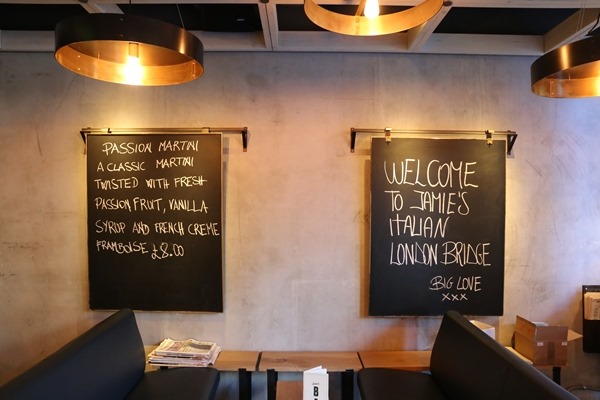 PASSION MARTINI
A CLASSIC MARTINI
TWISTED WITH FRESH
PASSION FRUIT, VANILLA
SYRUP AND FRENCH CREME
FRAMBOISE £8.00
WELCOME
TO JAMIE'S
ITALIAN
LONDON BRIDGE
BIG LOVE
XXX